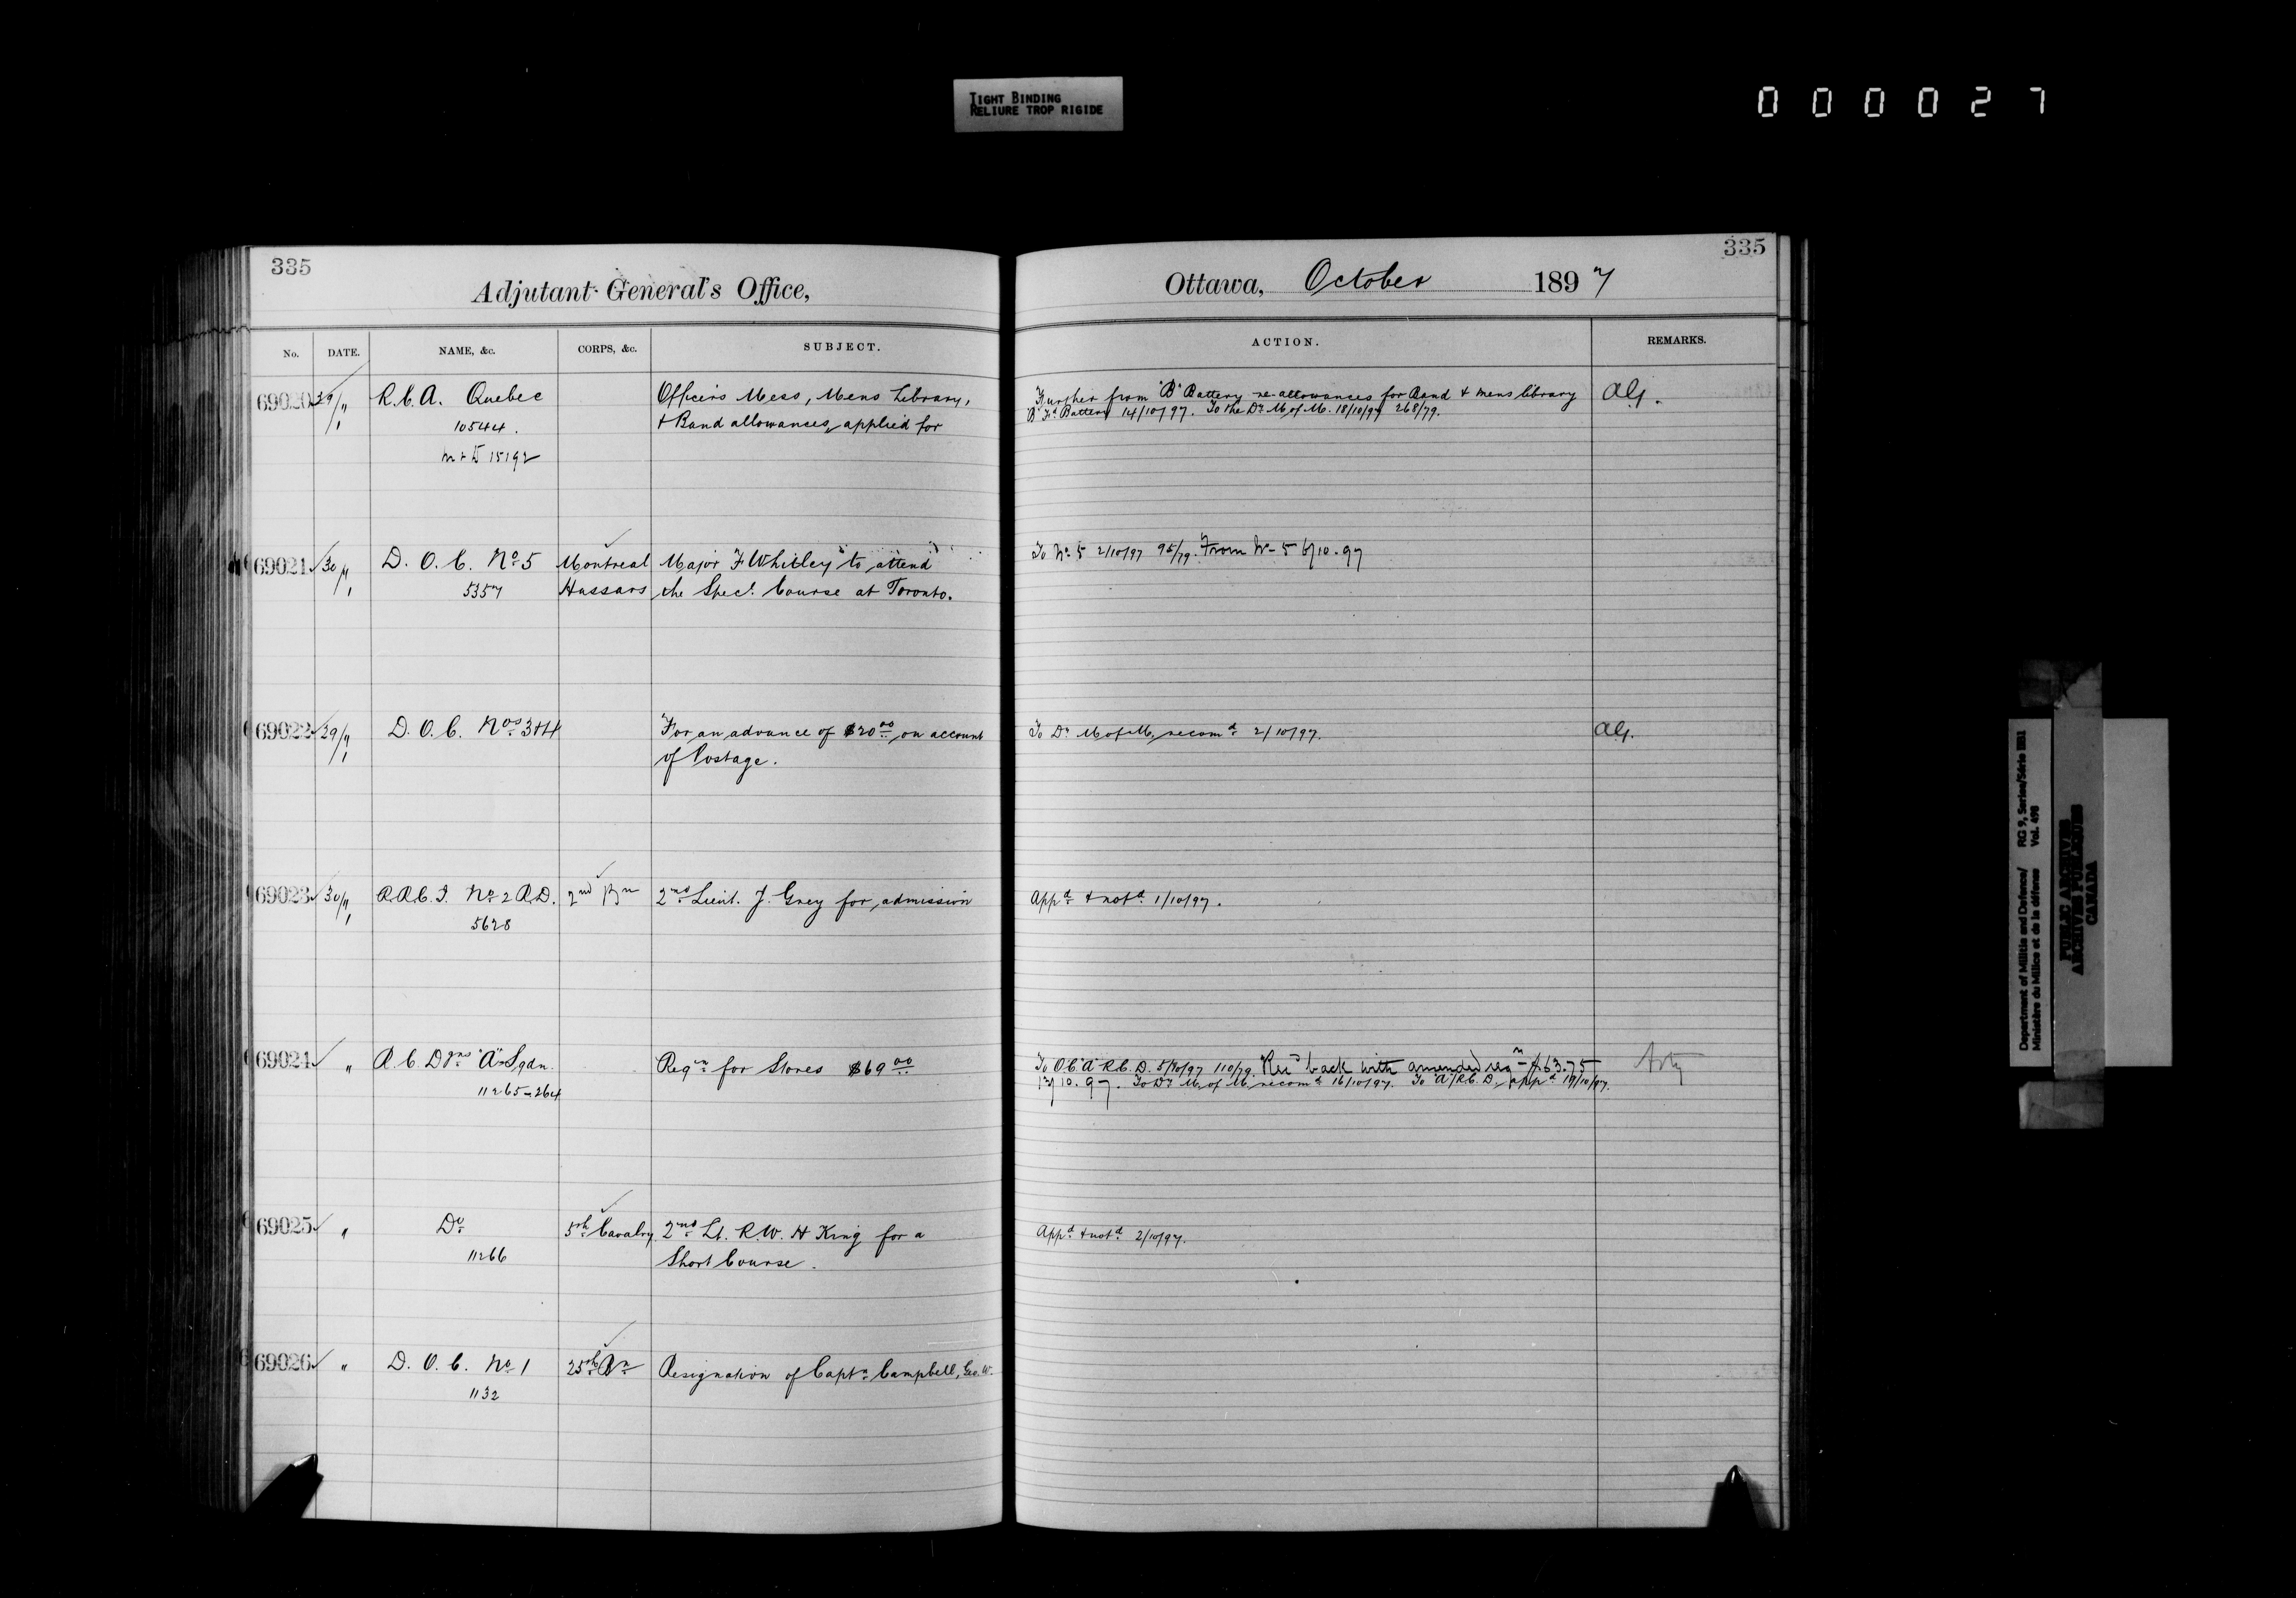 TIGHT BINDING
RELIURE TROP RIGIDE
000027
335
Adjutant General's Office,
No. DATE. NAME, &c. CORPS, &c. SUBJECT.
69020 29/9 R.C.A. Quebec Officers Mess, Mens Library,
10544. & Band allowances, applied for
15192
69021 30/9 D.O.C. No 5 Montreal Major F Whitley to attend
5357 Hussars the Specl. Course at Toronto.
69022 29/9 D.O.C. Nos 3&4 For an advance of $20.00 on account
of Postage.
69023 30/9 R.R.C.I. No 2 R.D. 2nd Bn 2nd Lieut. J. Grey for admission
5628
69024 " R.C.Dgns "A" Sqdn. Reqn for Stores $69.00
11265-264
69025 " Do 5th Cavalry 2nd Lt. R.W.H King for a
11266 Short Course.
69026 " D.O.C. No 1 25th Bn Resignation of Captn Campbell, Geo. W.
1132
335
Ottawa, October 1897
ACTION. REMARKS.
Further from "B" Battery re allowances for Band & mens library
"B" Fd Battery 14/10/97. To the Dr. M. of M. 18/10/97 268/79.
To No 5 2/10/97 95/79. From No 5 6/10.97
To Dr M. of M. recomd 2/10/97.
Appd & notd 1/10/97.
To O.C. "A" R.C.D. 5/10/97 110/79. Recd back with amended reqn $63.75
13/10.97. To Dr M. of M. recomd 16/10/97. To "A" R.C.D. appd 19/10/97.
Appd & notd 2/10/97.
Department of Militia and Defence/ RG 9, Series/Série IIB1
Ministère du Milice et de la défense Vol. 498
PUBLIC ARCHIVES
ARCHIVES PUBLIQUES
CANADA